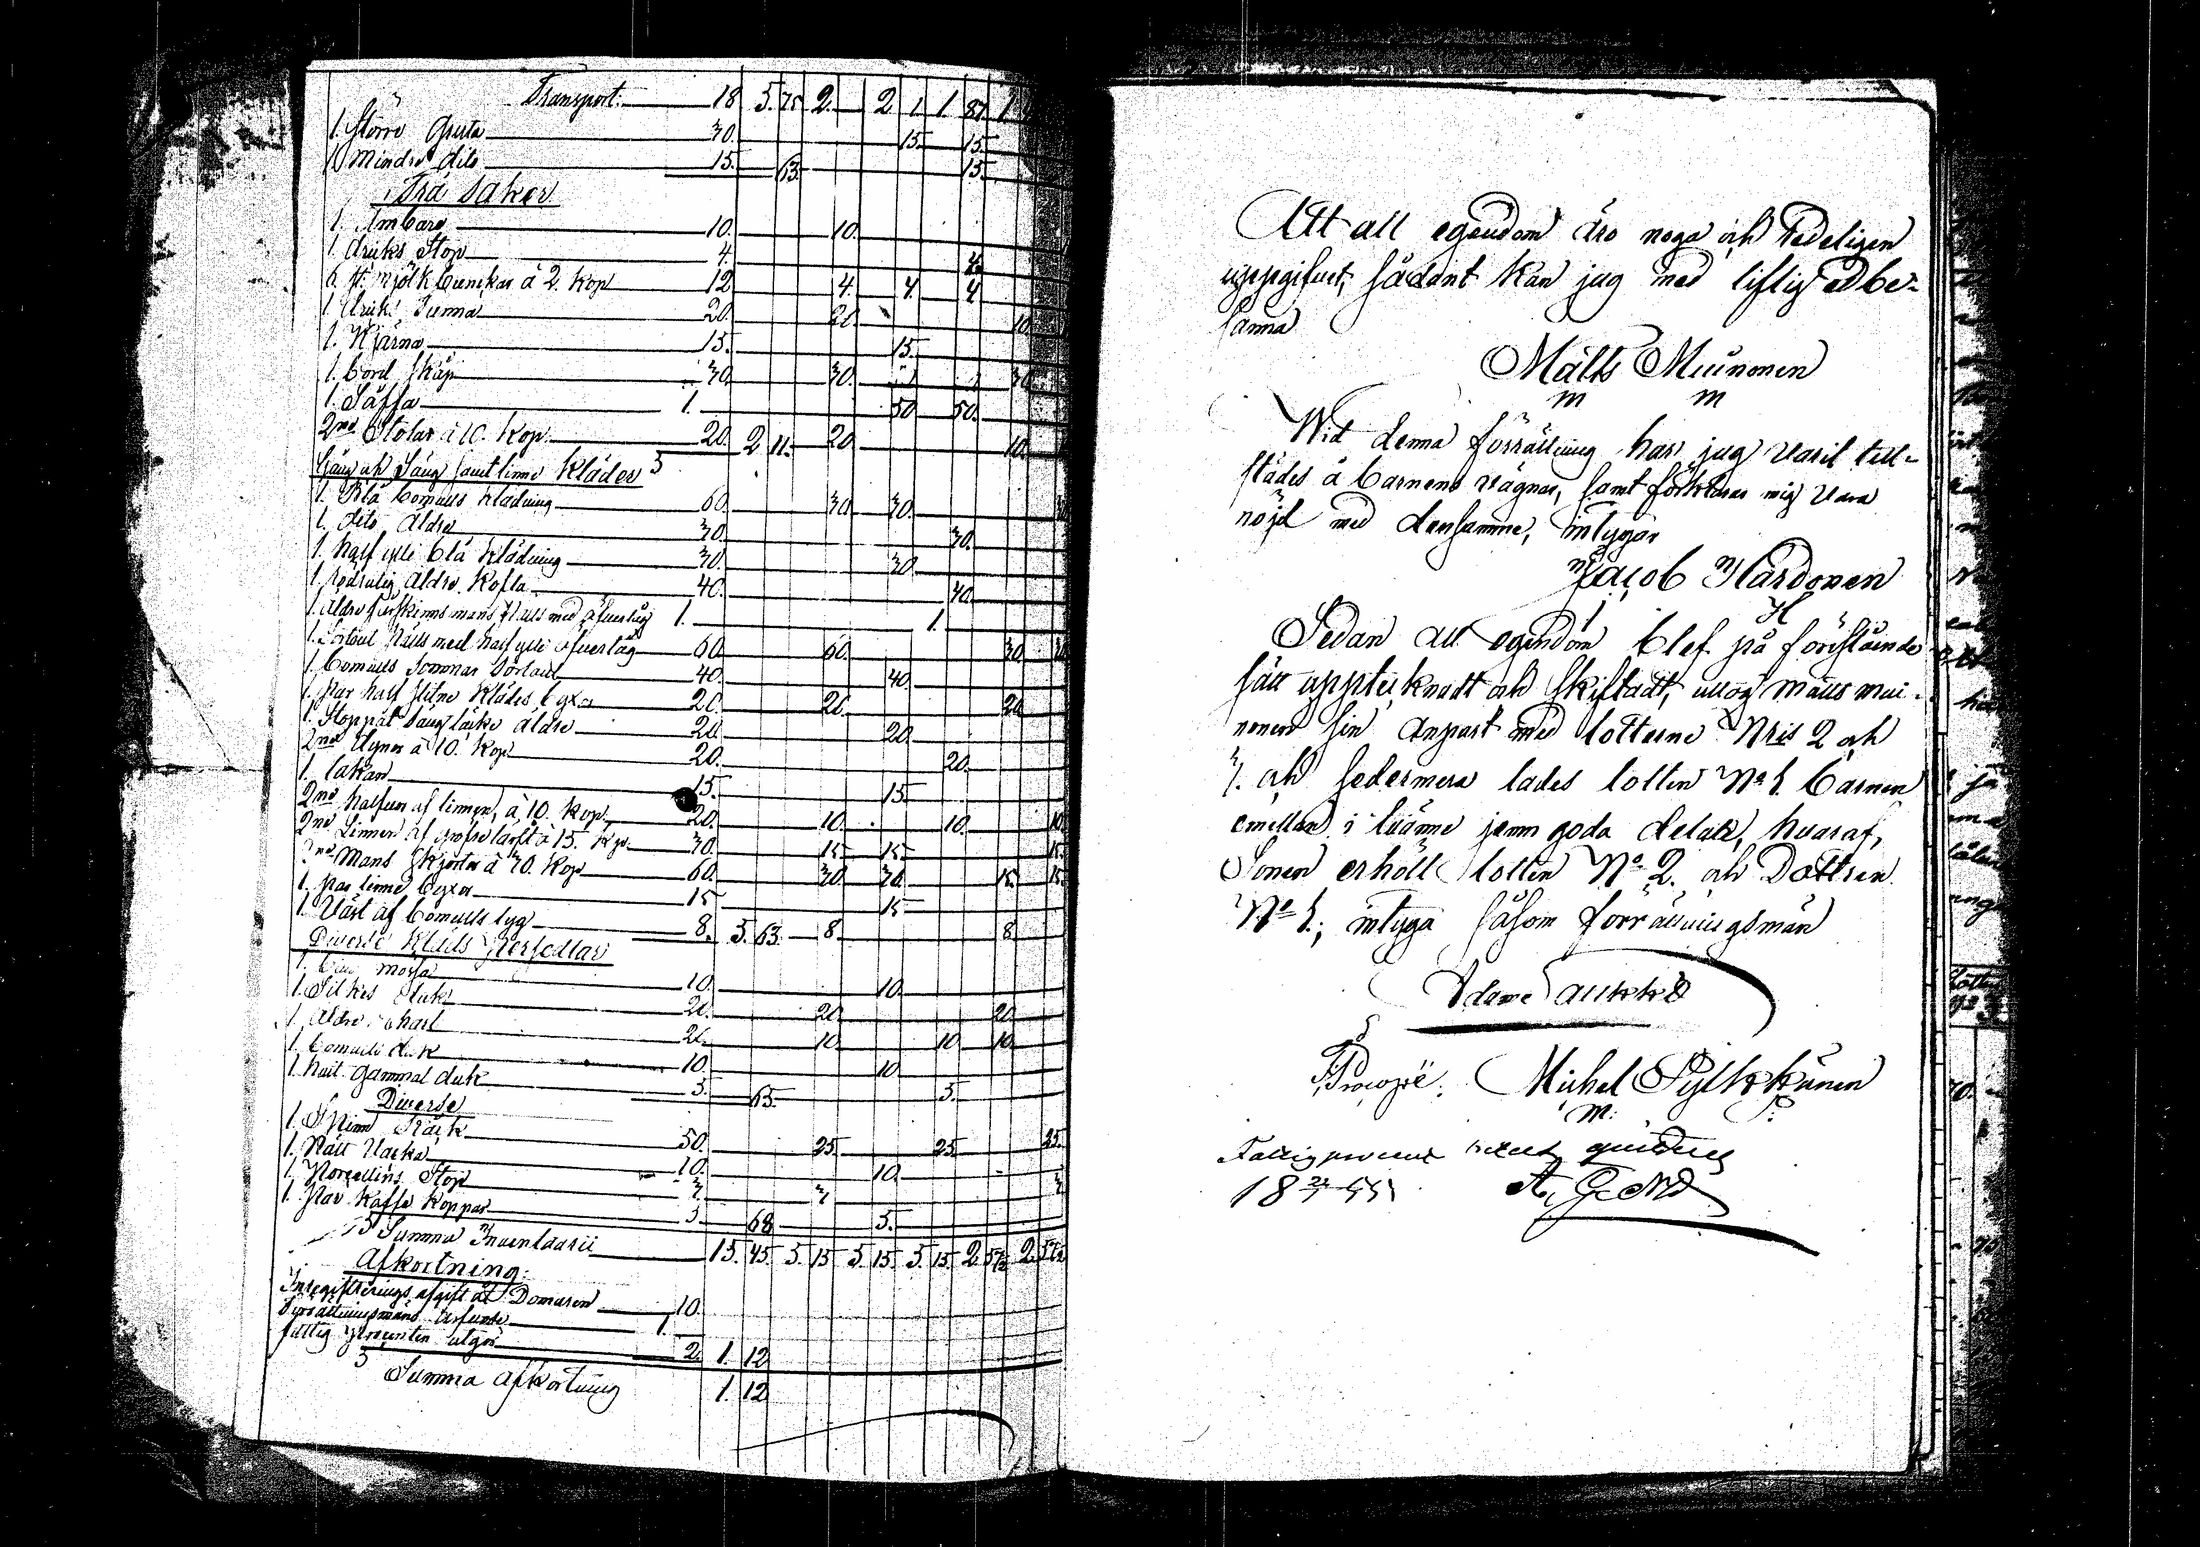 Transport. 18 5. 75 2. 2 1. 1 87
1. Större Gruta 30. 15. 15.
1. Mindre dito 15. 63. 15.
Trä Saker
1. Ämbare 10. 10.
1. driks Stop 4. 4.
6. st. mjölk bunckar à 2. Kop 12 4. 4. 4
1. Drik Tunna 20. 20. 10.
1. Kjärna 15. 15.
1. bord skåp 30. 30. 30.
1. Säffa 1. 50 50.
2ne Stolar à 10. Kop 20. 2 11. 20 10.
Gång och Säng samt linne Kläder
1. Blå bomulls klädning 60. 30. 30.
1. dito äldre 30. 30.
1. half ylle blå Klädning 30. 30.
1. rödrutig äldre Kofta 40. 40.
1. äldre fårskinns mans Päls med öfvertÿg 1. 1.
1. Sortout Päls med half ylle öfvertÿg 60. 60. 30.
1. bomulls sommar Sortout 40. 40.
1. par half slitne Klädes byxor 20. 20. 20
1. Stoppat Sängtäcke äldre 20. 20.
2ne Dynor à 10. Kop 20. 20.
1. lakan 15. 15.
2ne halfvor af linnen, à 10. Kop 20. 10. 10. 10.
2ne Linnen af grofre lärft à 15. Kop 30. 15. 15. 15.
2ne Mans Skjortor à 30. Kop 60. 30. 30. 15. 15.
1. par linne byxor 15 15
1. Väst af bomulls tyg 8. 5. 63. 8. 8
Diverse Kläds Persedlar
1. mössa 10. 10.
1. Silkes Duk 20. 20. 20.
1. äldre Charl 20. 10. 10. 10
1. bomulls duk 10. 10.
1. hvit gammal duk 5. 65. 5.
Diverse
1. Spinn Räck 50. 25. 25. 25.
1. Nätt Vacka 10. 10.
1. Porcellins Stop 3. 3
1. Par Kaffe Koppar 5. 68 5.
Summa Inventarii 15. 45. 5. 15 5. 15. 5. 15. 2. 57½ 2. 57½
Afkortning:
Inregistrerings afgift åt Domaren 10.
Förrättningsmäns arfvode 1.
fattig procenten utgör 2. 1. 12
Summa Afkortning 1. 12
Att all egendom äro noga och Redeligen
uppgifvet, sådant kan jag med liflig ed be-
sanna
Matts Muinonen
m m
Wid denna förrättning har jag varit till-
städes å barnens vägnar, samt förklarar mig vara
nöjd med densamma, intygar
Jacob Hardonen
H
Sedan all egendom blef på förestående
sätt upptecknadt och skiftadt, uttog Matts Mui-
nonen sin anpart med lotterne Nris 2 och
3. och sedermera lades lotten No 1. barnen
emellan i tvänne jemn goda delar, hvaraf,
Sonen erhöll lotten No 2. och Dottren
No 1., intyga såsom förrättningsmän
Adam Laukka
Michel Pylkkänen
m: P:
Fattigprocent qvitteras
18